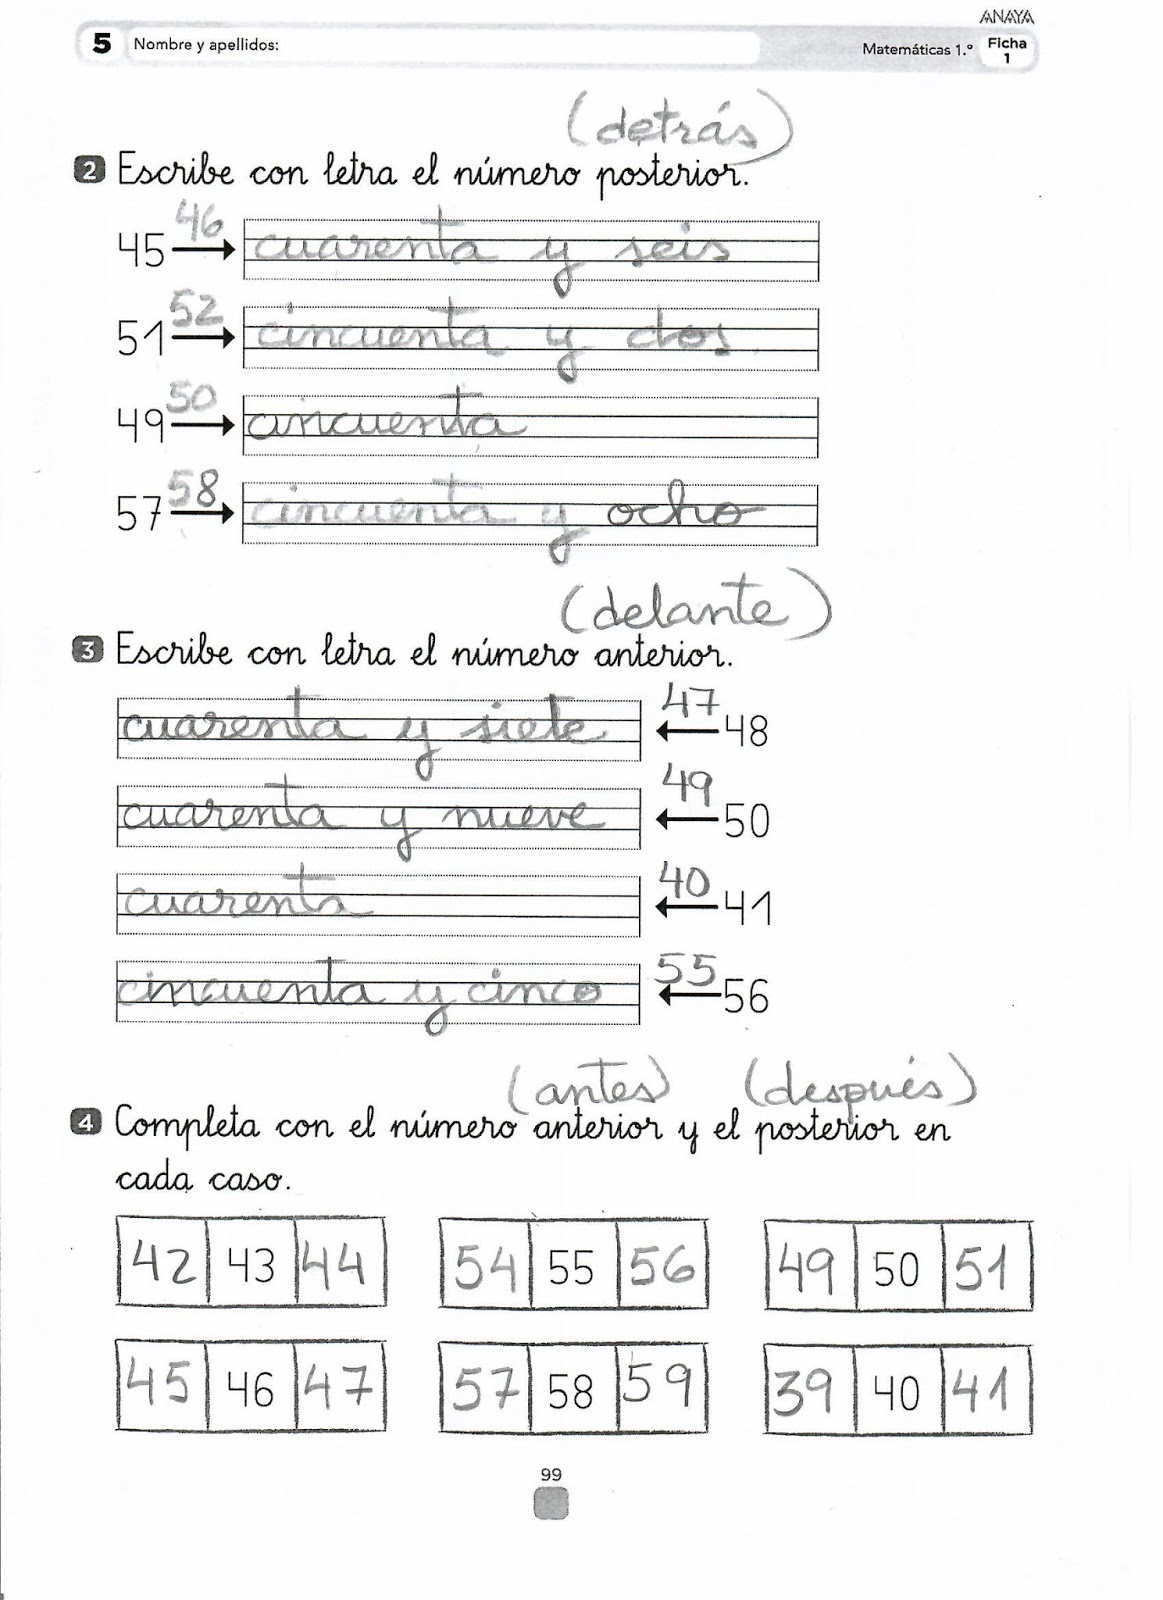 ANAYA
5 Nombre y apellidos: Matemáticas 1.º Ficha 1
(detrás)
2 Escribe con letra el número posterior.
46
45 cuarenta y seis
52
51 cincuenta y dos
50
49 cincuenta
58
57 cincuenta y ocho
(delante)
3 Escribe con letra el número anterior.
47
cuarenta y siete 48
49
cuarenta y nueve 50
40
cuarenta 41
55
cincuenta y cinco 56
(antes) (después)
4 Completa con el número anterior y el posterior en
cada caso.
42 43 44 54 55 56 49 50 51
45 46 47 57 58 59 39 40 41
99